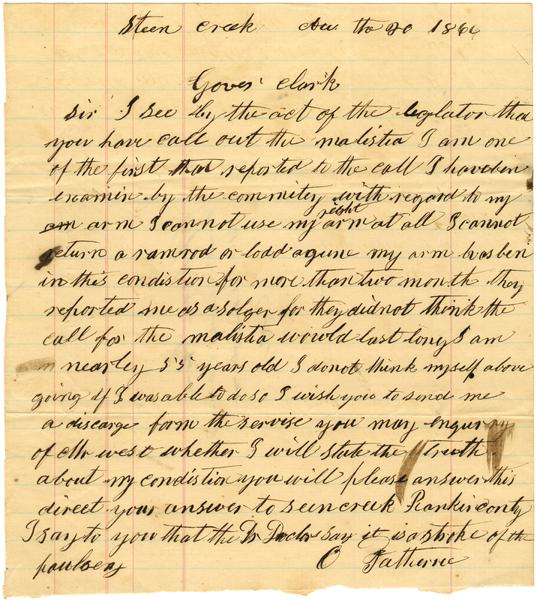 Steen Creek Au the 20 186
Gover Clark
Sir I see by the act of the legslator that
you have call out the malistia I am one
of the first that reported to the call I have ben
examin by the commitey with regard to my
arm I cannot use my right arm at all I cannot
return a ramrod or lodd a gune my arm has ben
in this condistion for more than two month they
reported me as a solger for they did not think the
call for the malistia would last long I am
nearley 55 years old I do not think myself above
going if I was able to do so I wish you to send me
a discarge form the servise you may enquiry
of Mr west whether I will state the truth
about my condistion you will please answer this
direct your answer to steen creek Rankin conty
I say to you that the Docters say it is a stroke of the
paulsey O